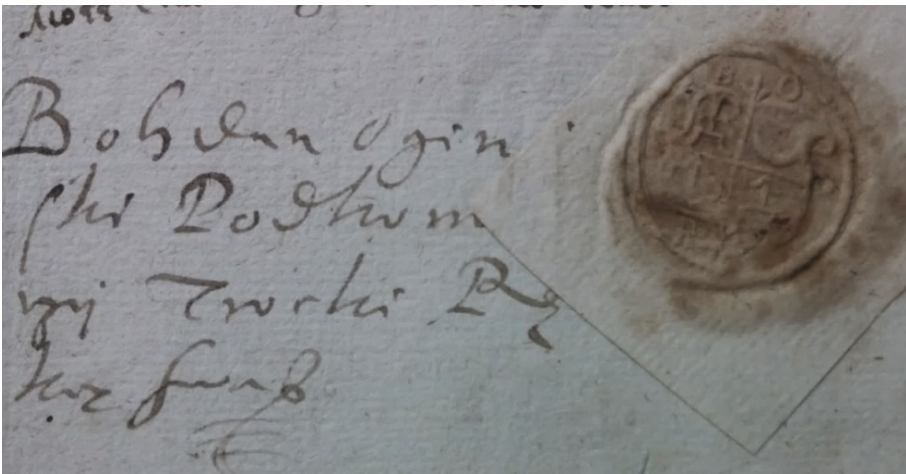 Bohdan Ogin
ski Podkom
rzy Trocki Rę
ką swą
B O